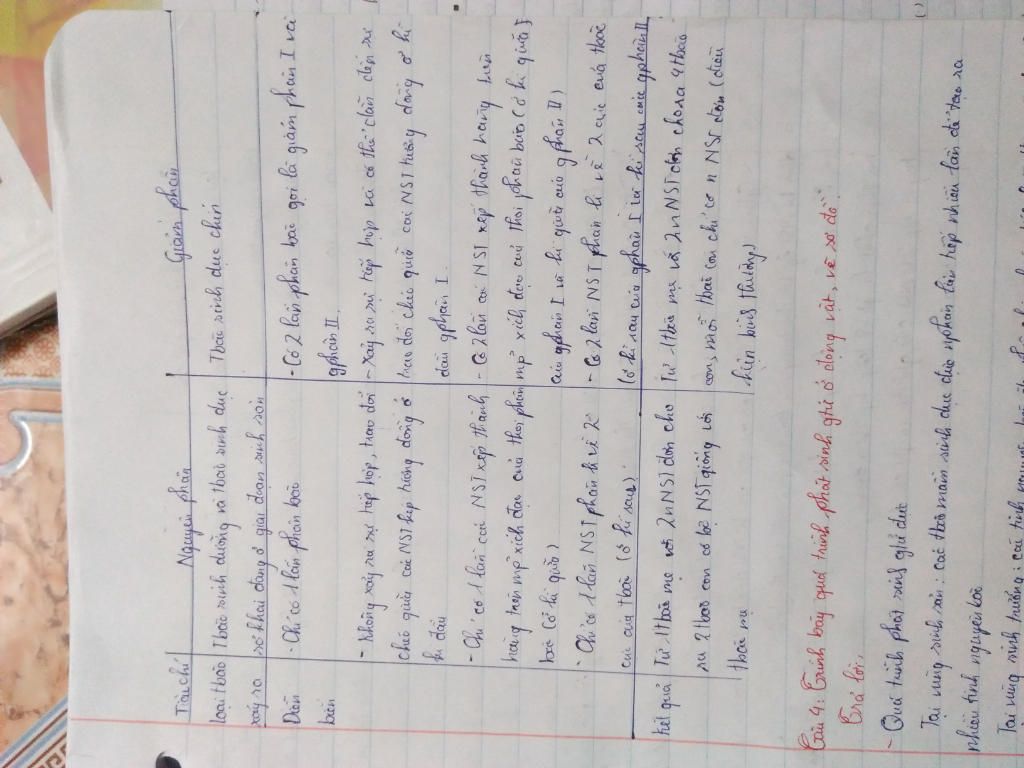 Tiêu chí Nguyên phân Giảm phân
loại tbào Tbào sinh dưỡng và tbào sinh dục Tbào sinh dục chín
xảy ra sơ khai đang ở giai đoạn sinh sản
Diễn - Chỉ có 1 lần phân bào - Có 2 lần phân bào gọi là giảm phân I và
biến gphân II.
- Không xảy ra sự tiếp hợp, trao đổi - Xảy ra sự tiếp hợp và có thể dẫn đến sự
chéo giữa các NST kép tương đồng ở trao đổi chéo giữa các NST tương đồng ở kì
kì đầu đầu gphân I.
- Chỉ có 1 lần các NST xếp thành - Có 2 lần các NST xếp thành hàng trên
hàng trên mp xích đạo của thoi phân mp xích đạo của thoi phân bào (ở kì giữa
bào (ở kì giữa) của gphân I và kì giữa của gphân II)
- Chỉ có 1 lần NST phân li về 2 - Có 2 lần NST phân li về 2 cực của tbào
cực của tbào (ở kì sau) (ở kì sau của gphân I và kì sau của gphân II
kết quả Từ 1 tbào mẹ với 2n NST đơn cho Từ 1 tbào mẹ với 2n NST đơn cho ra 4 tbào
ra 2 tbào con có bộ NST giống với con, mỗi tbào con chỉ có n NST đơn (điều
tbào mẹ kiện bình thường)
Câu 4: Trình bày quá trình phát sinh gtử ở động vật, vẽ sơ đồ
Trả lời:
- Quá trình phát sinh gtử đực
Tại vùng sinh sản: các tbào mầm sinh dục đực nphân liên tiếp nhiều lần để tạo ra
nhiều tinh nguyên bào
Tại vùng sinh trưởng: các tinh nguyên bào